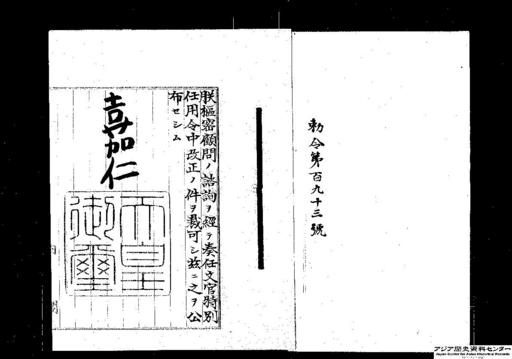 勅令第百九十三號
朕樞密顧問ノ諮詢ヲ經テ奏任文官特別
任用令中改正ノ件ヲ裁可シ茲ニ之ヲ公
布セシム
嘉仁
天皇
御璽
アジア歴史資料センター
Japan Center for Asian Historical Records